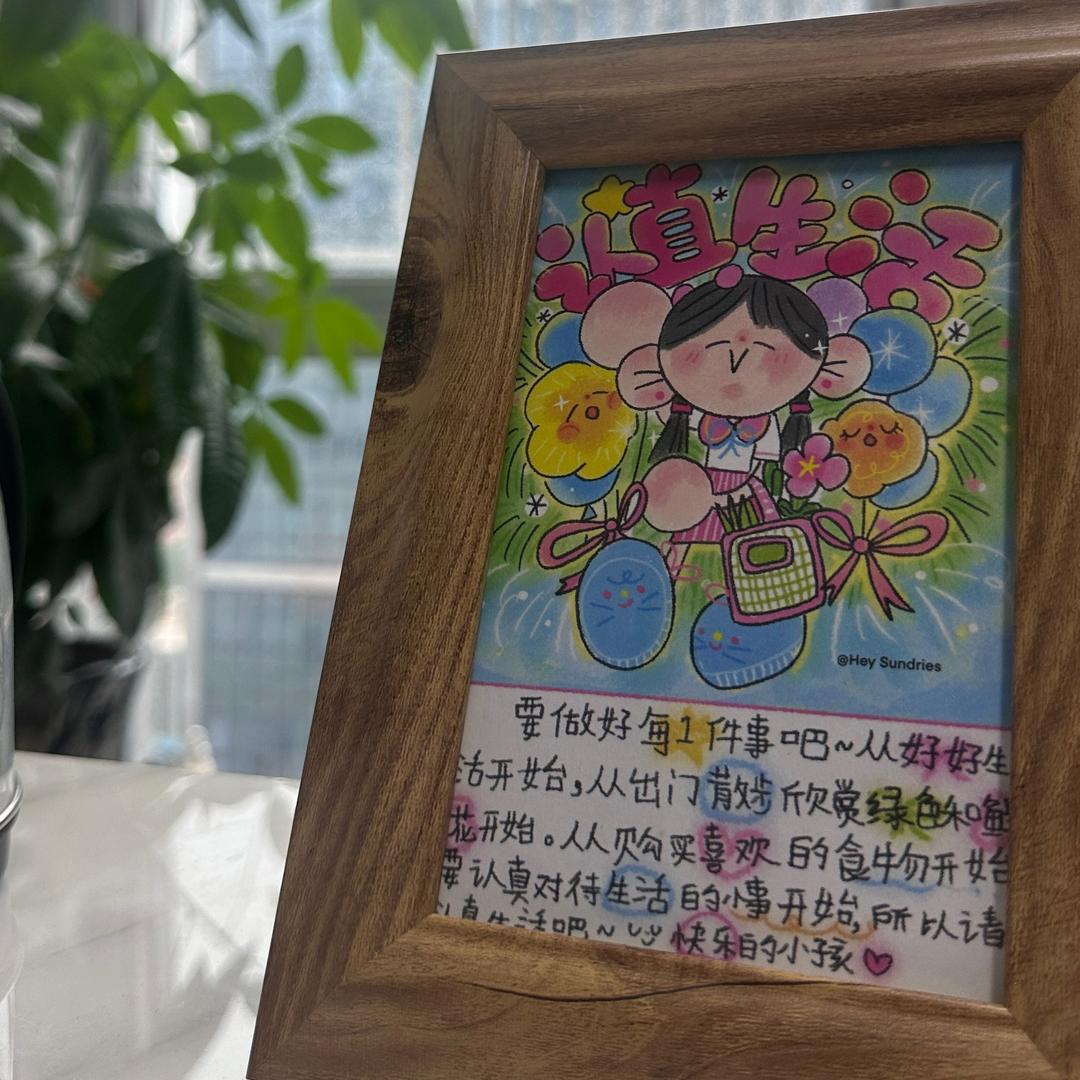 认真生活
@Hey Sundries
要做好每1件事吧~从好好生
活开始,从出门散步欣赏绿色和鲜
花开始。从购买喜欢的食物开始
要认真对待生活的小事开始,所以请
认真生活吧~快乐的小孩